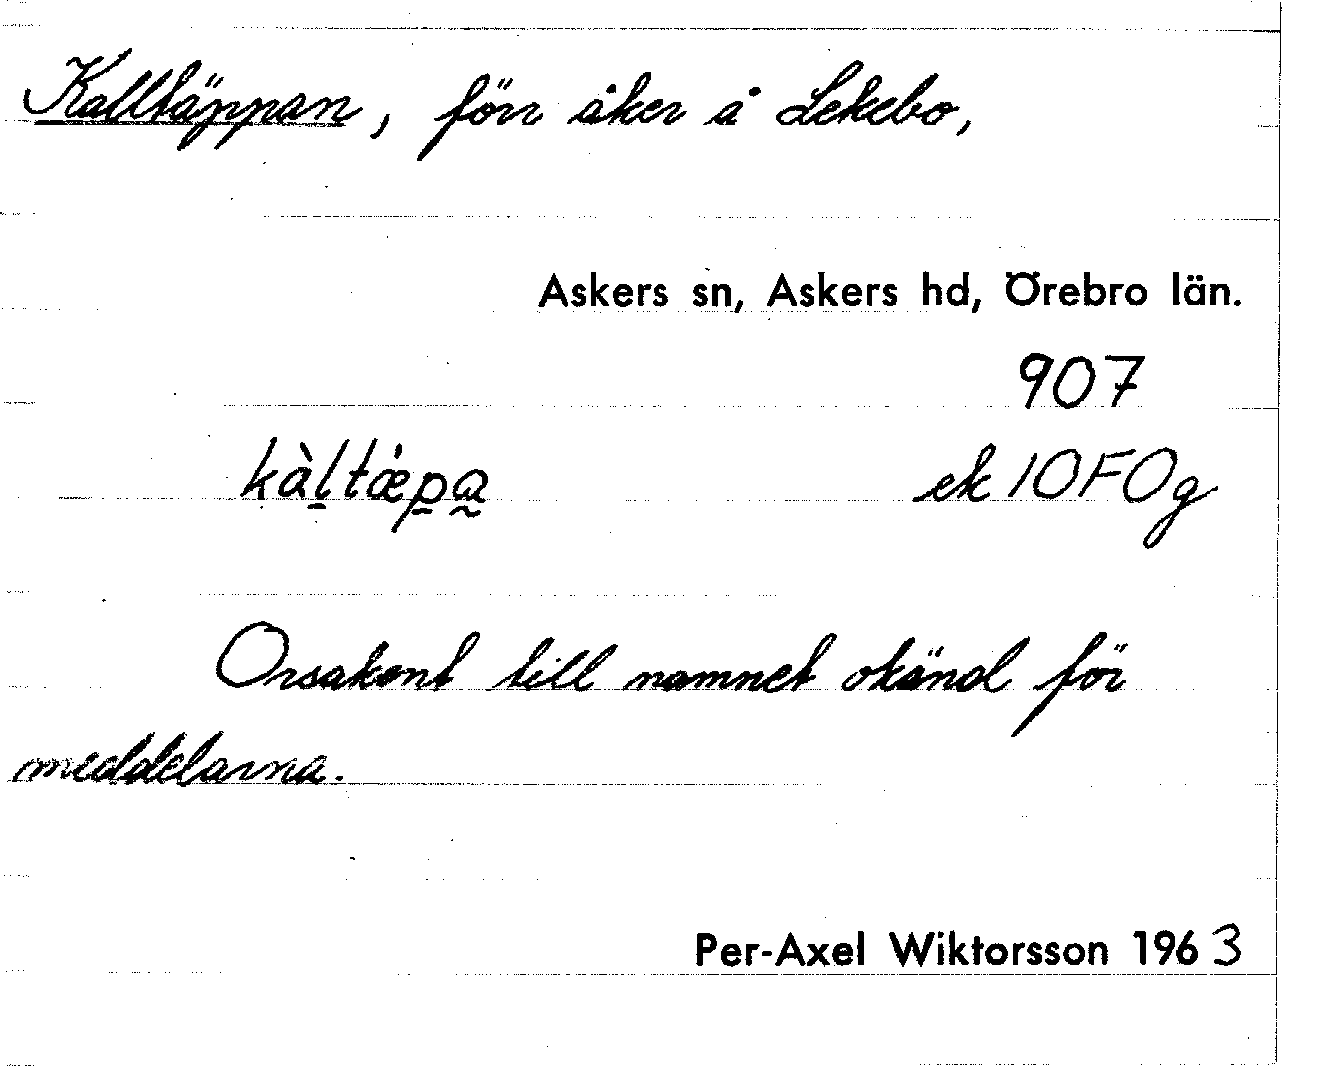 Kalltäppan, förr åker å Lekebo,
Askers sn, Askers hd, Örebro län.
907
kàl̠tǽp̠a̰ ek 10F0g
Orsakent till namnet okänd för
meddelarna.
Per-Axel Wiktorsson 1963